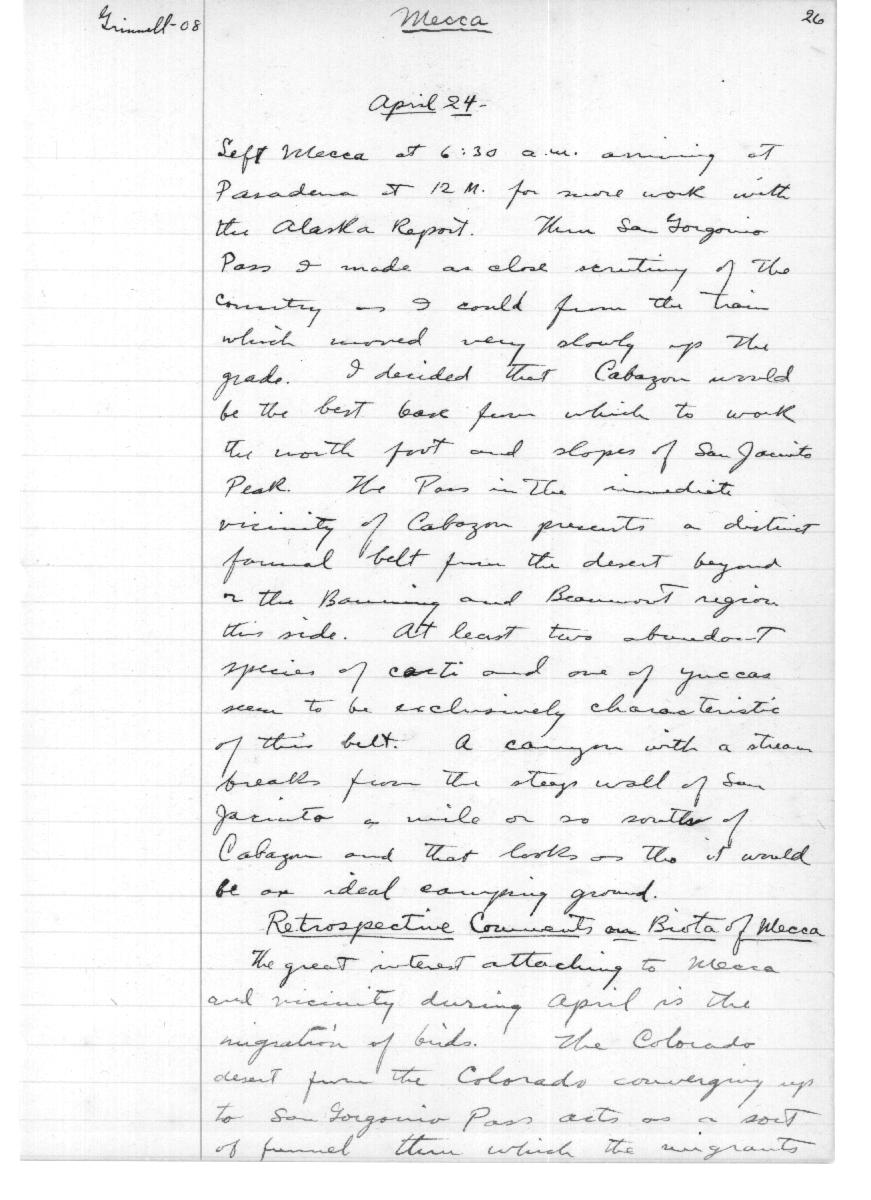 Grinnell-08
Mecca
26
April 24-
Left Mecca at 6:30 a.m. arriving at
Pasadena at 12 M. for more work with
the Alaska Report. Thru San Gorgonio
Pass I made as close scrutiny of the
country as I could from the train
which moved very slowly up the
grade. I decided that Cabazon would
be the best base from which to work
the north foot and slopes of San Jacinto
Peak. The Pass in the immediate
vicinity of Cabazon presents a distinct
faunal belt from the desert beyond
or the Banning and Beaumont region
this side. At least two abundant
species of cacti and one of yuccas
seem to be exclusively characteristic
of this belt. A canyon with a stream
breaks from the steep wall of San
Jacinto a mile or so south of
Cabazon and that looks as tho it would
be an ideal camping ground.
Retrospective Comments on Biota of Mecca
The great interest attaching to Mecca
and vicinity during April is the
migration of birds. The Colorado
desert from the Colorado converging up
to San Gorgonio Pass acts as a sort
of funnel thru which the migrants